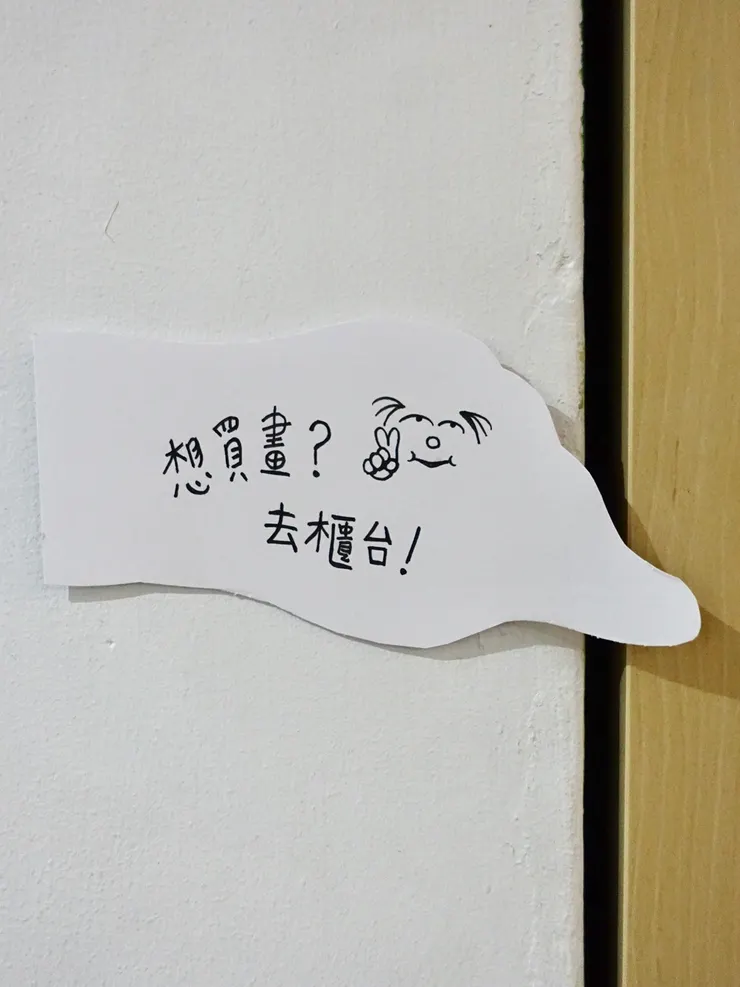 想買畫?
去櫃台!